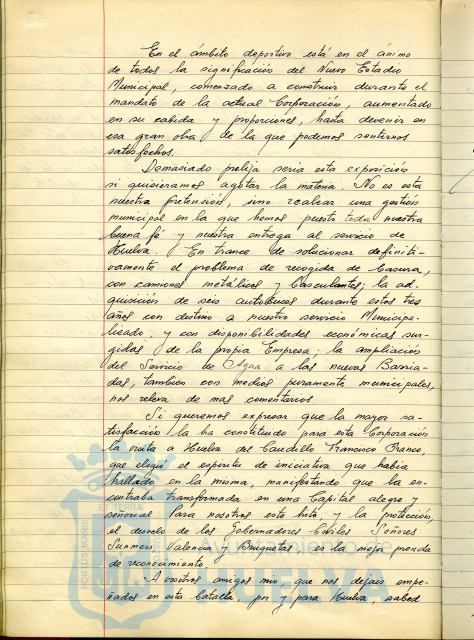 En el ámbito deportivo está en el ánimo
de todos la significación del Nuevo Estadio
Municipal, comenzado a construir durante el
mandato de la actual Corporación, aumentado
en su cabida y proporciones, hasta devenir en
esa gran obra de la que podemos sentirnos
satisfechos.
Demasiado prolija seria esta exposición
si quisieramos agotar la materia. No es esta
nuestra pretensión, sino realzar una gestión
municipal en la que hemos puesto toda nuestra
buena fé y nuestra entrega al servicio de
Huelva. En trance de solucionar definiti-
vamente el problema de recogida de basura,
con camiones metálicos y basculantes; la ad-
quisición de seis autobuses durante estos tres
años con destino a nuestro servicio Municipa-
lizado, y con disponibilidades económicas sur-
gidas de la propia Empresa; la ampliación
del Servicio de Agua a las nuevas Barria-
das, tambien con medios puramente municipales,
nos releva de mas comentarios
Si queremos expresar que la mayor sa-
tisfacción la ha constituido para esta Corporación
la visita a Huelva del Caudillo Francisco Franco,
que elogió el espíritu de iniciativa que habia
hallado en la misma, manifestando que la en-
contraba transformada en una Capital alegre y
señorial Para nosotros este hito y la protección,
el desvelo de los Gobernadores Civiles Señores
Summers, Valencia y Bruquetas es la mejor prenda
de reconocimiento.
A vosotros amigos mio, que nos dejais empe-
ñados en esta batalla, por y para Huelva, sabed
PORTUS MARIS
TERRAE
HUELVA